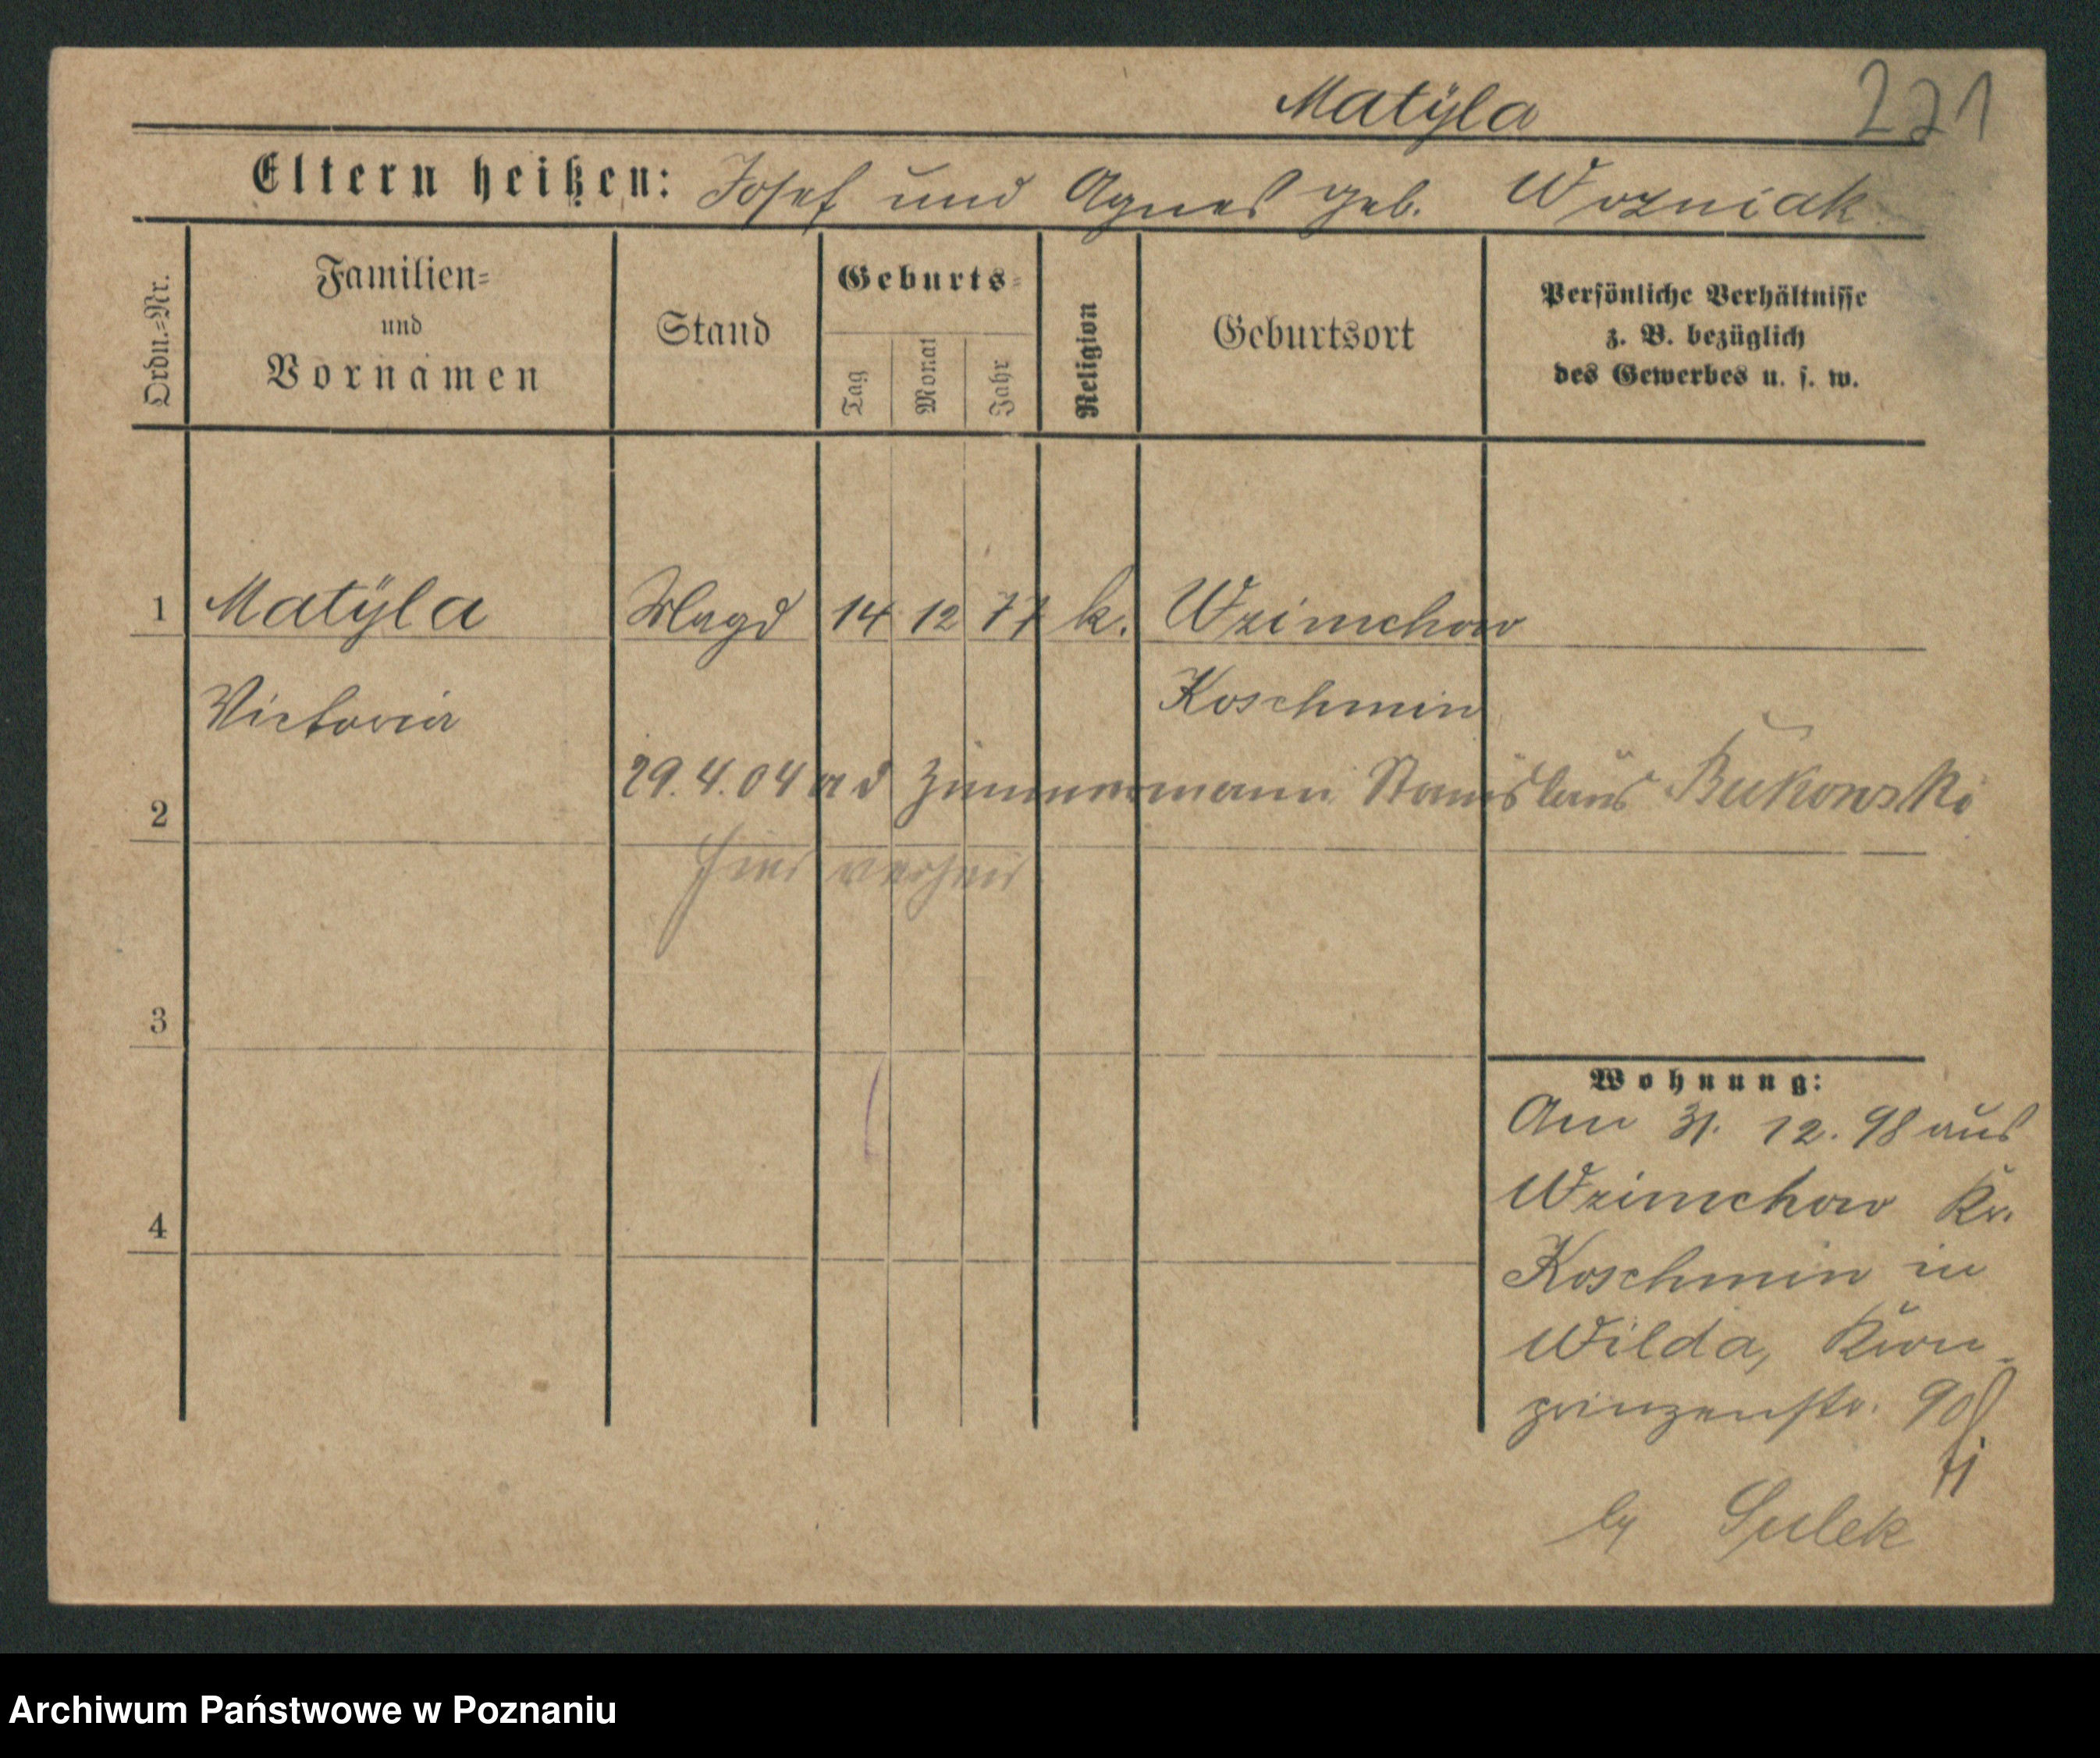 Matÿla 221
Eltern heißen: Josef und Agnes geb. Wozniak
Ordn.=Nr.
Familien=
und
Vornamen
Stand
Geburts=
Tag
Monat
Jahr
Religion
Geburtsort
Persönliche Verhältnisse
z. B. bezüglich
des Gewerbes u. s. w.
1 Matÿla Magd 14 12 77 k. Wzimchow
Victoria Koschmin
29.4.04 ad Zimmermann Stanislaus Bukowski
2
hier verheir
3
4
Wohnung:
Am 31. 12. 98 aus
Wzimchow Kr.
Koschmin in
Wilda, Kron-
prinzenstr. 90
Sulek
Archiwum Państwowe w Poznaniu